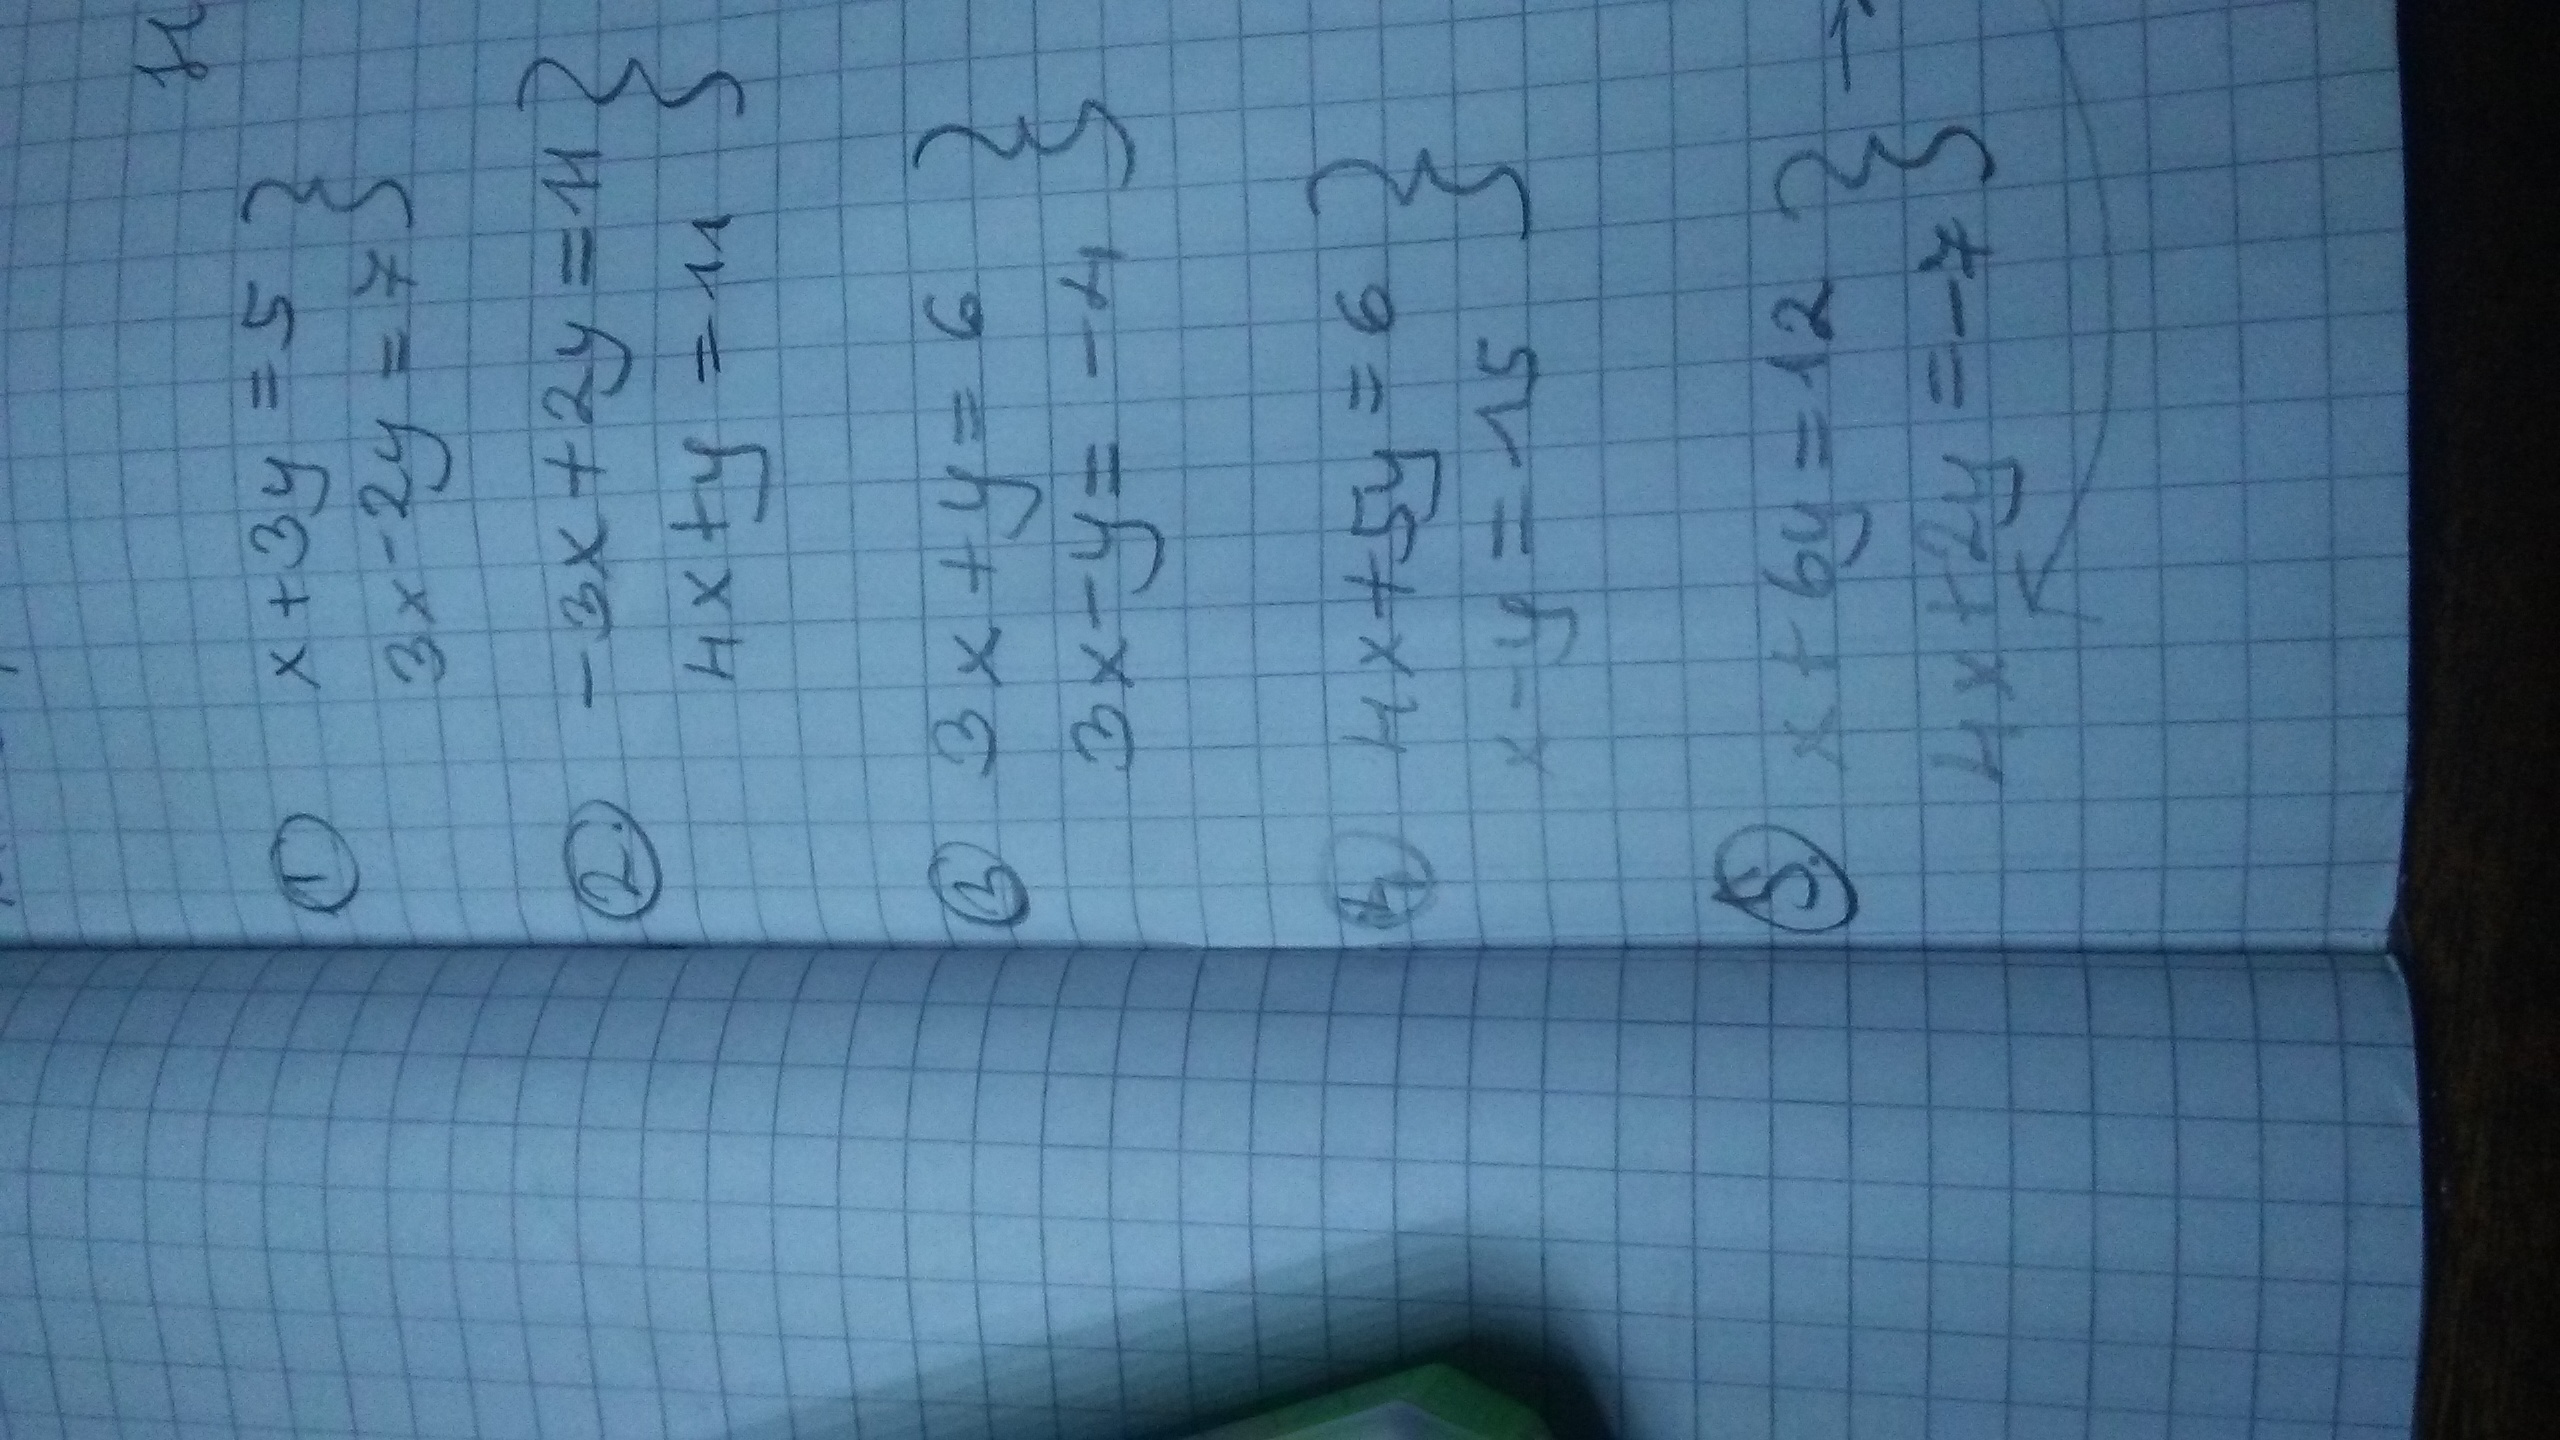 ① x+3y=5 }
3x-2y=7
② -3x+2y=11 }
4x+y=11
③ 3x+y=6 }
3x-y=-4
④ 4x+5y=6 }
x-y=15
⑤ x+6y=12 }
4x+2y=-7